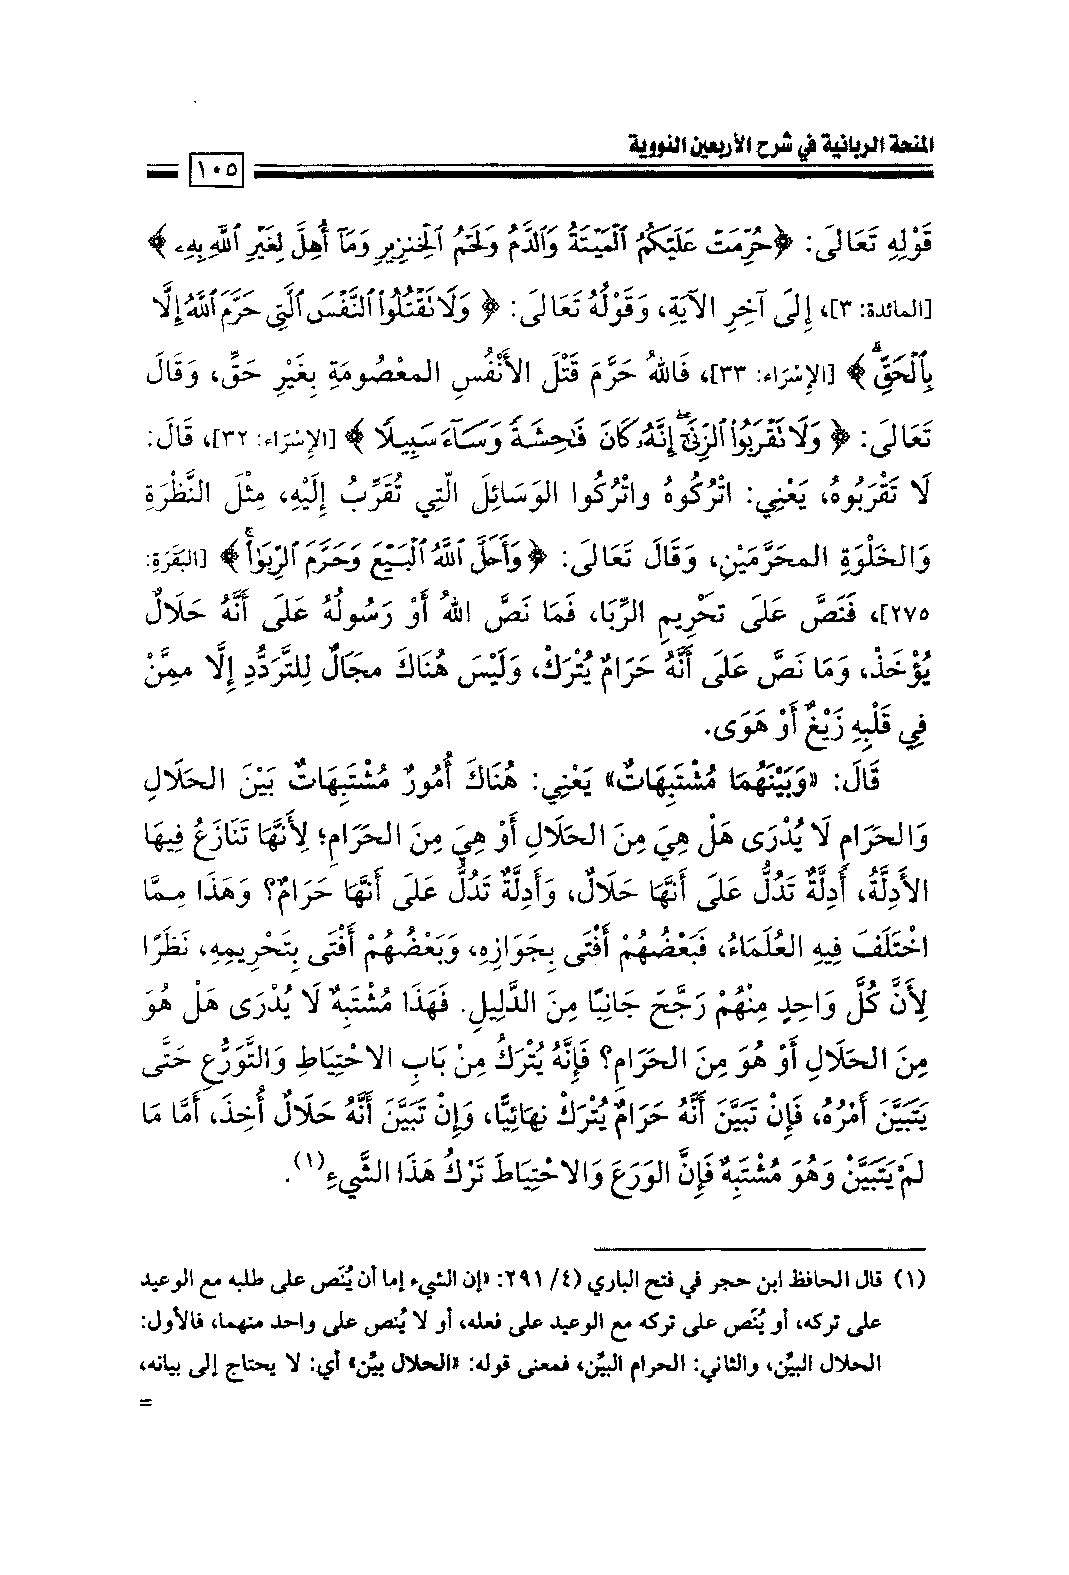 المنحة الربانية في شرح الأربعين النووية
١٠٥
قَوْلِهِ تَعَالَى: ﴿حُرِّمَتْ عَلَيْكُمُ ٱلْمَيْتَةُ وَٱلدَّمُ وَلَحْمُ ٱلْخِنزِيرِ وَمَآ أُهِلَّ لِغَيْرِ ٱللَّهِ بِهِۦ﴾
[المائدة: ٣]، إِلَى آخِرِ الآيَةِ، وَقَوْلُهُ تَعَالَى: ﴿وَلَا تَقْتُلُوا۟ ٱلنَّفْسَ ٱلَّتِى حَرَّمَ ٱللَّهُ إِلَّا
بِٱلْحَقِّ ۗ﴾ [الإِسْرَاء: ٣٣]، فَاللهُ حَرَّمَ قَتْلَ الأَنْفُسِ المعْصُومَةِ بِغَيْرِ حَقٍّ، وَقَالَ
تَعَالَى: ﴿وَلَا تَقْرَبُوا۟ ٱلزِّنَىٰٓ ۖ إِنَّهُۥ كَانَ فَـٰحِشَةً وَسَآءَ سَبِيلًا﴾ [الإِسْرَاء: ٣٢]، قَالَ:
لَا تَقْرَبُوهُ، يَعْنِي: اتْرُكُوهُ واتْرُكُوا الوَسَائِلَ الَّتِي تُقَرِّبُ إِلَيْهِ، مِثْلَ النَّظْرَةِ
وَالخَلْوَةِ المحَرَّمَيْنِ، وَقَالَ تَعَالَى: ﴿وَأَحَلَّ ٱللَّهُ ٱلْبَيْعَ وَحَرَّمَ ٱلرِّبَوٰا۟ ۚ﴾ [البَقَرَةِ:
٢٧٥]، فَنَصَّ عَلَى تَحْرِيمِ الرِّبَا، فَمَا نَصَّ اللهُ أَوْ رَسُولُهُ عَلَى أَنَّهُ حَلَالٌ
يُؤْخَذْ، وَمَا نَصَّ عَلَى أَنَّهُ حَرَامٌ يُتْرَكْ، وَلَيْسَ هُنَاكَ مجَالٌ لِلتَّرَدُّدِ إِلَّا ممِنَّنْ
فِي قَلْبِهِ زَيْغٌ أَوْ هَوَى.
قَالَ: «وَبَيْنَهُمَا مُشْتَبِهَاتٌ» يَعْنِي: هُنَاكَ أُمُورٌ مُشْتَبِهَاتٌ بَيْنَ الحَلَالِ
وَالحَرَامِ لَا يُدْرَى هَلْ هِيَ مِنَ الحَلَالِ أَوْ هِيَ مِنَ الحَرَامِ؛ لِأَنَّهَا تَنَازَعُ فِيهَا
الأَدِلَّةُ، أَدِلَّةٌ تَدُلُّ عَلَى أَنَّهَا حَلَالٌ، وَأَدِلَّةٌ تَدُلُّ عَلَى أَنَّهَا حَرَامٌ؟ وَهَذَا مِمَّا
اخْتَلَفَ فِيهِ العُلَمَاءُ، فَبَعْضُهُمْ أَفْتَى بِجَوَازِهِ، وَبَعْضُهُمْ أَفْتَى بِتَحْرِيمِهِ، نَظَرًا
لِأَنَّ كُلَّ وَاحِدٍ مِنْهُمْ رَجَّحَ جَانِبًا مِنَ الدَّلِيلِ. فَهَذَا مُشْتَبِهٌ لَا يُدْرَى هَلْ هُوَ
مِنَ الحَلَالِ أَوْ هُوَ مِنَ الحَرَامِ؟ فَإِنَّهُ يُتْرَكُ مِنْ بَابِ الاحْتِيَاطِ وَالتَّوَرُّعِ حَتَّى
يَتَبَيَّنَ أَمْرُهُ، فَإِنْ تَبَيَّنَ أَنَّهُ حَرَامٌ يُتْرَكْ نِهَائِيًّا، وَإِنْ تَبَيَّنَ أَنَّهُ حَلَالٌ أُخِذَ، أَمَّا مَا
لَمْ يَتَبَيَّنْ وَهُوَ مُشْتَبِهٌ فَإِنَّ الوَرَعَ وَالاحْتِيَاطَ تَرْكُ هَذَا الشَّيءِ(١).
(١) قال الحافظ ابن حجر في فتح الباري (٤/ ٢٩١: «إن الشيء إما أن يُنَص على طلبه مع الوعيد
على تركه، أو يُنَص على تركه مع الوعيد على فعله، أو لا يُنص على واحد منهما، فالأول:
الحلال البيِّن، والثاني: الحرام البيِّن، فمعنى قوله: «الحلال بيِّن» أي: لا يحتاج إلى بيانه،
=